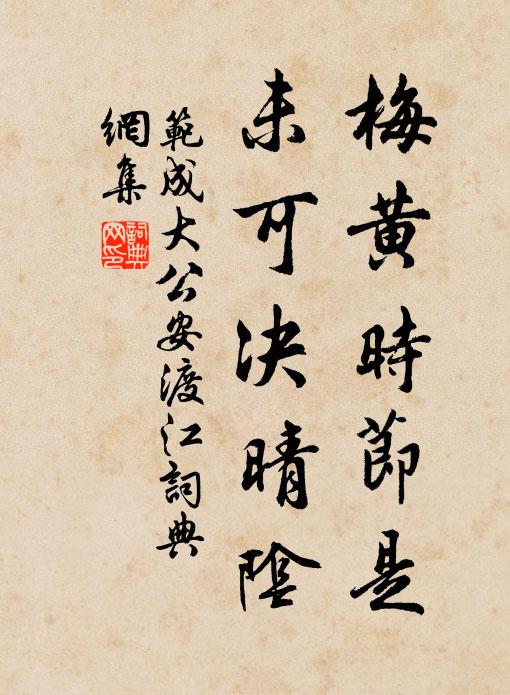 梅黄時節是
未可決晴陰
範成大公安渡江詞典
網集
詞典
网印